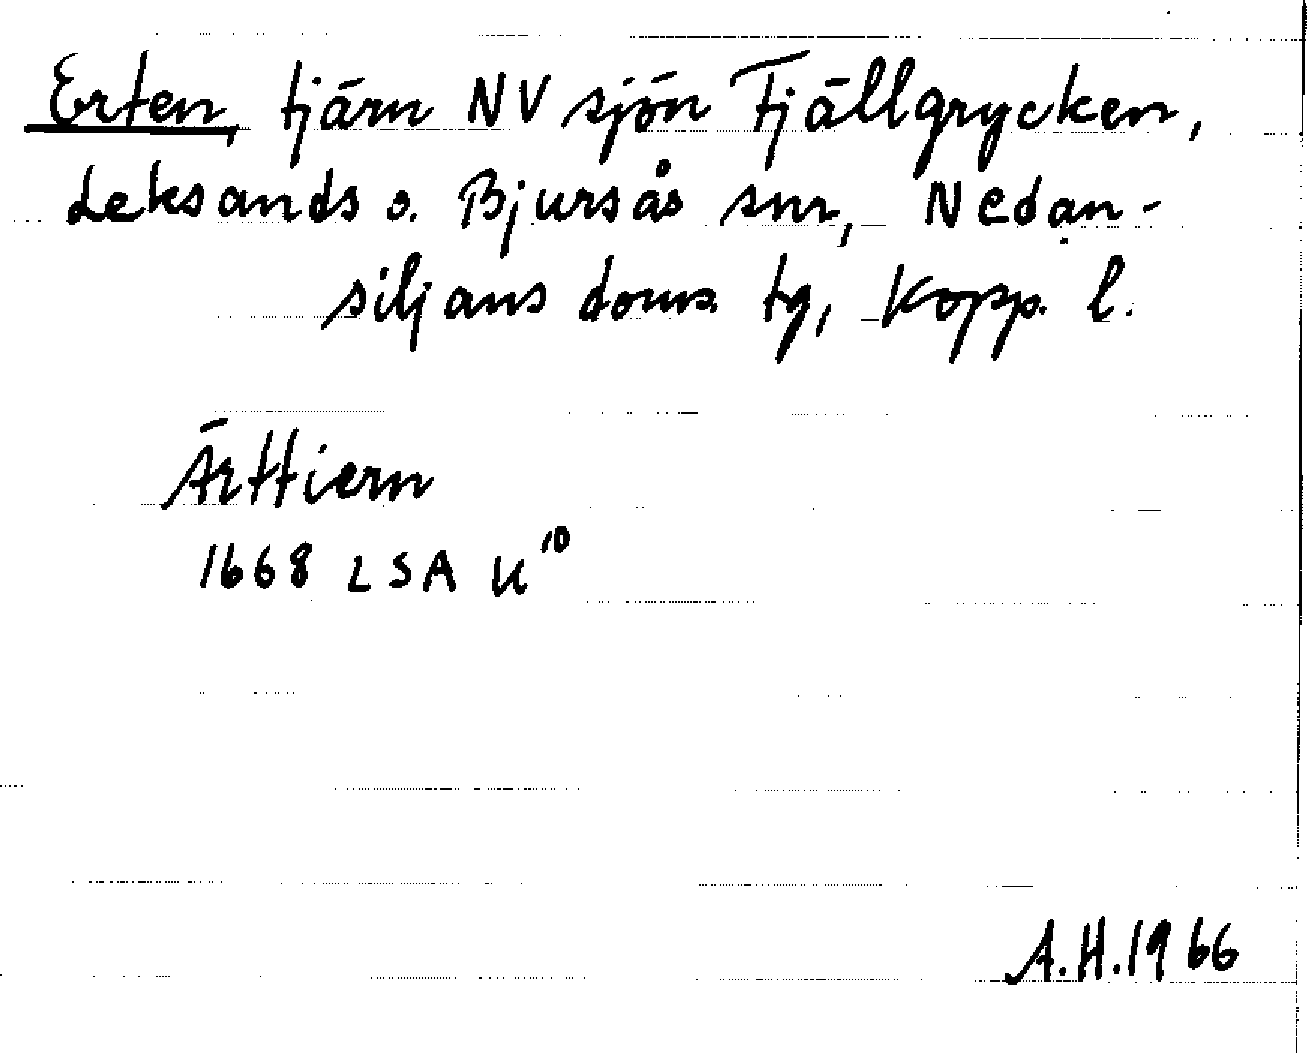 Erten, tjärn NV sjön Fjällgrycken,
Leksands o. Bjursås snr, Nedan-
siljans doms. tg, Kopp. l.
Ärttiern
1668 LSA U¹⁰
A.H.1966